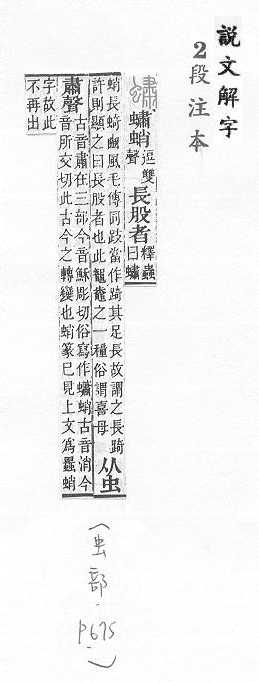 說文解字
2段注本
蠨蛸逗雙聲長股者釋蟲曰蠨
蛸長踦豳風毛傳同跂當作踦其足長故謂之長踦
許則顯之曰長股者也此鼅鼄之一種俗謂喜母
从虫
肅聲古音肅在三部今音穌彫切俗寫作蠨蛸古音消今
音所交切此古今之轉變也蛸篆已見上文爲蟲蛸
字故此
不再出
(虫部.p675)